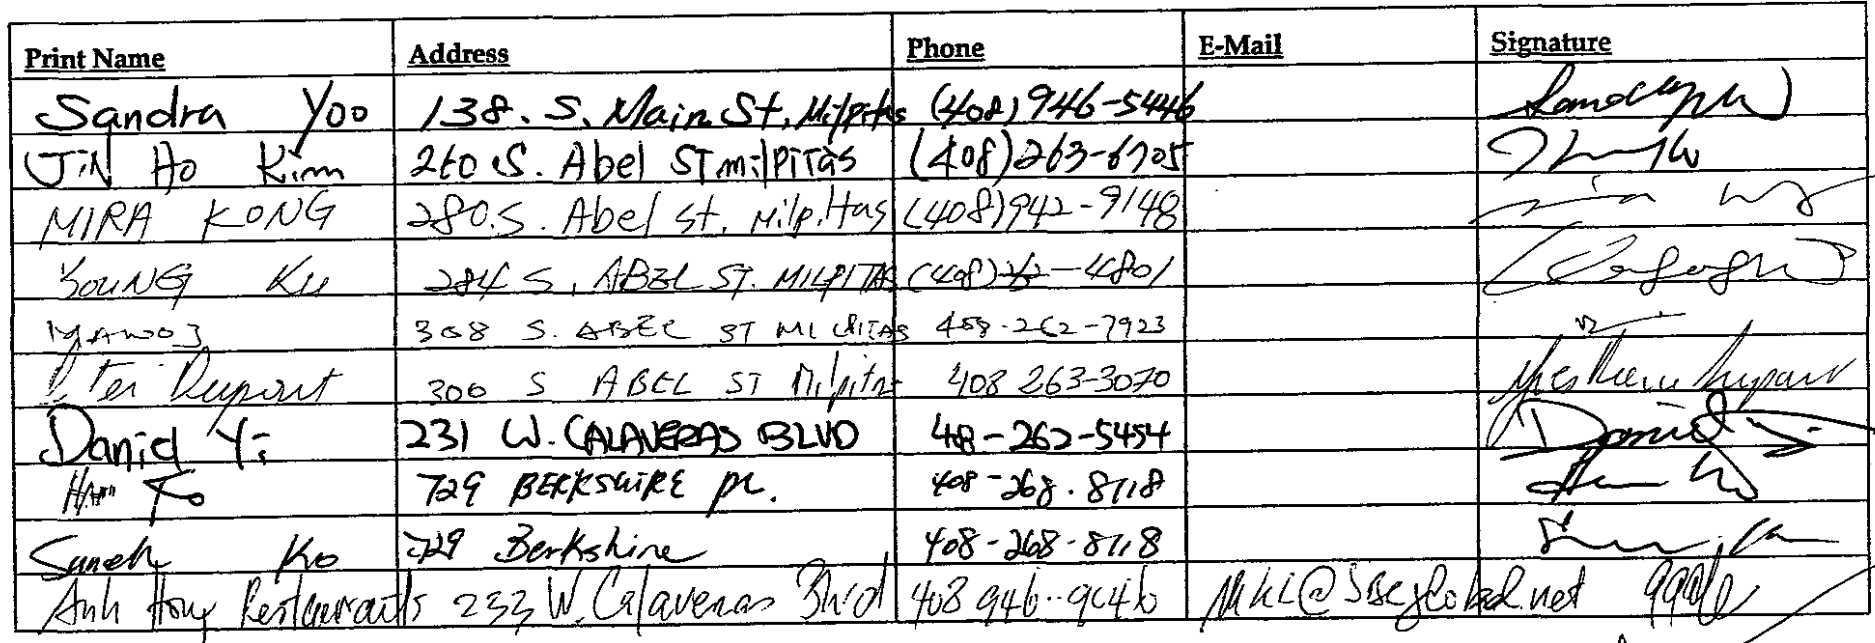 Print Name Address Phone E-Mail Signature
Sandra Yoo 138. S. Main St, Milpitas (408) 946-5446
JiN Ho Kim 260 S. Abel ST milPiTas (408) 263-6705
MIRA KONG 280.S. Abel St. Milpitas (408) 942-9148
YOUNG Ku 284 S. ABEL ST. MILPITAS (408) -4801
MANOJ 308 S. ABEL ST MILPITAS 408-262-7923
Dupont 300 S ABEL ST Milpitas 408 263-3070
Daniel Yi 231 W. CALAVERAS BLVD 408-262-5454 Daniel
729 BERKSHIRE PL. 408-268-8118
Ko 729 Berkshire 408-268-8118
Anh Hong Restaurants 233 W. Calaveras Blvd 408 946-9646 MKL@SBCglobal.net